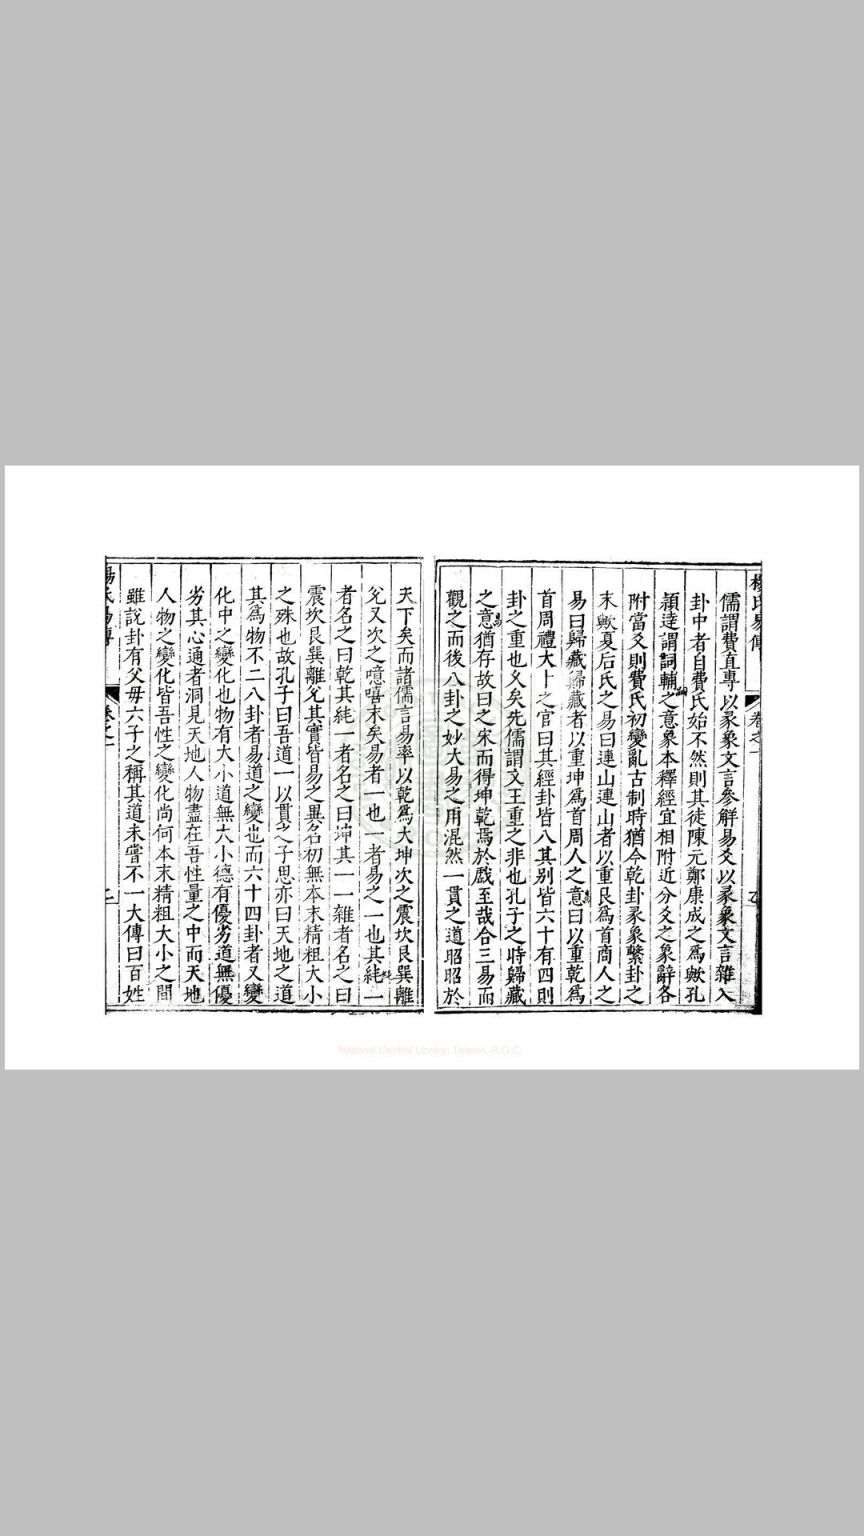 楊氏易傳
卷之一
儒謂費直專以彖象文言參解易爻以彖象文言雜入
卦中者自費氏始不然則其徒陳元鄭康成之為歟孔
頴逹謂詞輔之意象本釋經宜相附近分爻之象辭各
附當爻則費氏初變亂古制時猶今乾卦彖象繫卦之
末歟夏后氏之易曰連山連山者以重艮爲首商人之
易曰歸藏歸藏者以重坤爲首周人之意曰以重乾爲
首周禮大卜之官曰其經卦皆八其别皆六十有四則
卦之重也乆矣先儒謂文王重之非也孔子之時歸藏
之意猶存故曰之宋而得坤乾焉於戲至哉合三易而
觀之而後八卦之妙大易之用混然一貫之道昭昭於
天下矣而諸儒言易率以乾爲大坤次之震坎艮巽離
兊又次之噫嘻末矣易者一也一者易之一也其純一
者名之曰乾其純一者名之曰坤其一一雜者名之曰
震坎艮巽離兊其實皆易之異名初無本末精粗大小
之殊也故孔子曰吾道一以貫之子思亦曰天地之道
其爲物不二八卦者易道之變也而六十四卦者又變
化中之變化也物有大小道無大小德有優劣道無優
劣其心通者洞見天地人物盡在吾性量之中而天地
人物之變化皆吾性之變化尚何本末精粗大小之間
雖說卦有父母六子之稱其道未嘗不一大傳曰百姓
楊氏易傳
卷之一
National Central Library, Taiwan, R.O.C.